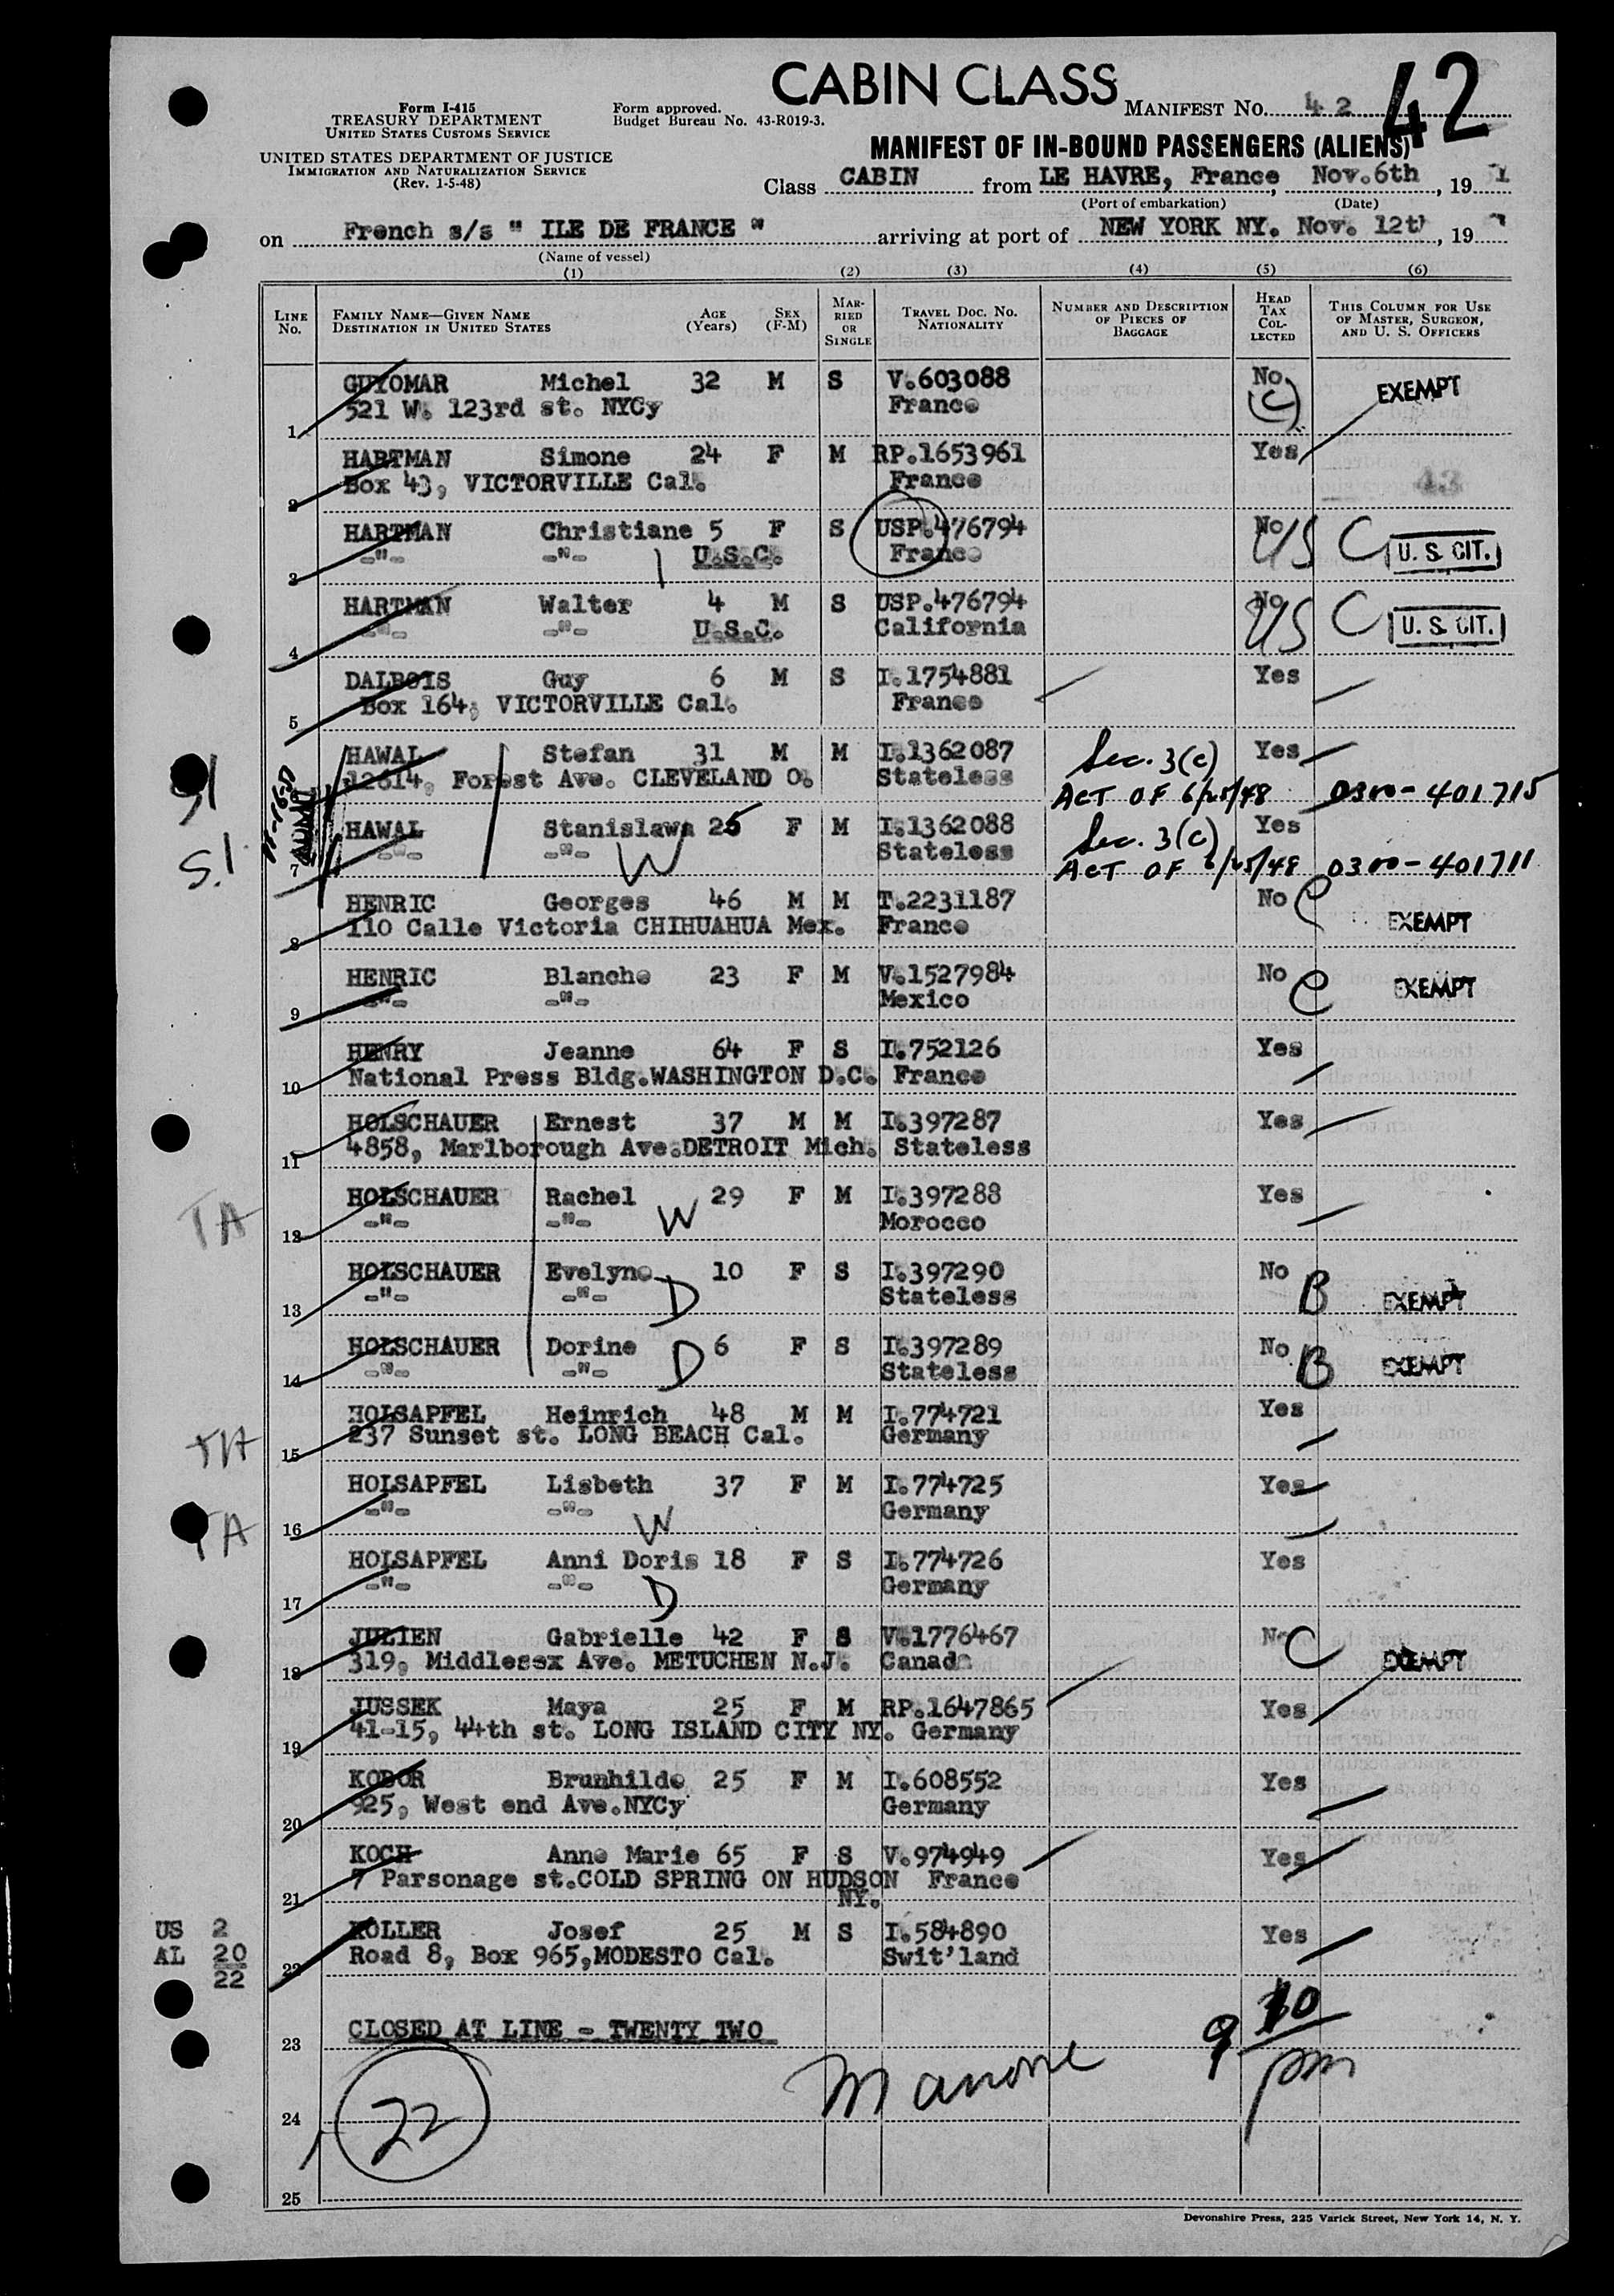 CABIN CLASS
42
Form I-415
TREASURY DEPARTMENT
UNITED STATES CUSTOMS SERVICE
Form approved.
Budget Bureau No. 43-R019-3.
MANIFEST NO. 42
UNITED STATES DEPARTMENT OF JUSTICE
IMMIGRATION AND NATURALIZATION SERVICE
(Rev. 1-5-48)
MANIFEST OF IN-BOUND PASSENGERS (ALIENS)
Class CABIN from LE HAVRE, France, Nov.6th, 19 1
(Port of embarkation) (Date)
on French s/s " ILE DE FRANCE " arriving at port of NEW YORK NY. Nov. 12th, 19
(Name of vessel)
(1) (2) (3) (4) (5) (6)
LINE No. FAMILY NAME—GIVEN NAME DESTINATION IN UNITED STATES AGE (Years) SEX (F-M) MARRIED OR SINGLE TRAVEL DOC. NO. NATIONALITY NUMBER AND DESCRIPTION OF PIECES OF BAGGAGE HEAD TAX COLLECTED THIS COLUMN FOR USE OF MASTER, SURGEON, AND U. S. OFFICERS
GUYOMAR Michel 32 M S V.603088 No EXEMPT
1 521 W. 123rd st. NYCy France C
HARTMAN Simone 24 F M RP.1653961 Yes
2 Box 43, VICTORVILLE Cal. France
HARTMAN Christiane 5 F S USP.476794 No US C U. S. CIT.
3 -"- -"- U.S.C. France
HARTMAN Walter 4 M S USP.476794 No US C U. S. CIT.
4 -"- -"- U.S.C. California
DALBOIS Guy 6 M S I.1754881 Yes
5 Box 164, VICTORVILLE Cal. France
HAWAL Stefan 31 M M I.1362087 Sec. 3(c) Yes
SI 12614, Forest Ave. CLEVELAND O. Stateless ACT OF 6/25/48 0300-401715
HAWAL Stanislawa 26 F M I.1362088 Sec. 3(c) Yes
S.I 7 -"- -"- W Stateless ACT OF 6/25/48 0300-401711
HENRIC Georges 46 M M T.2231187 No C EXEMPT
8 110 Calle Victoria CHIHUAHUA Mex. France
HENRIC Blanche 23 F M V.1527984 No C EXEMPT
9 -"- -"- Mexico
HENRY Jeanne 64 F S I.752126 Yes
10 National Press Bldg.WASHINGTON D.C. France
HOLSCHAUER Ernest 37 M M I.397287 Yes
11 4858, Marlborough Ave.DETROIT Mich. Stateless
HOLSCHAUER Rachel 29 F M I.397288 Yes
TA 12 -"- -"- W Morocco
HOLSCHAUER Evelyne 10 F S I.397290 No
13 -"- -"- D Stateless B EXEMPT
HOLSCHAUER Dorine 6 F S I.397289 No
14 -"- -"- D Stateless B EXEMPT
HOLSAPFEL Heinrich 48 M M I.774721 Yes
TA 15 237 Sunset st. LONG BEACH Cal. Germany
HOLSAPFEL Lisbeth 37 F M I.774725 Yes
TA 16 -"- -"- W Germany
HOLSAPFEL Anni Doris 18 F S I.774726 Yes
17 -"- -"- D Germany
JULIEN Gabrielle 42 F S V.1776467 No C
18 319, Middlesex Ave. METUCHEN N.J. Canada EXEMPT
JUSSEK Maya 25 F M RP.1647865 Yes
19 41-15, 44th st. LONG ISLAND CITY NY. Germany
KOBOR Brunhilde 25 F M I.608552 Yes
20 925, West end Ave.NYCy Germany
KOCH Anne Marie 65 F S V.974949 Yes
21 7 Parsonage st.COLD SPRING ON HUDSON NY. France
US 2 KOLLER Josef 25 M S I.584890 Yes
AL 20 22 Road 8, Box 965,MODESTO Cal. Swit'land
22
23 CLOSED AT LINE - TWENTY TWO
9 10 pm
24 22
25
Devonshire Press, 225 Varick Street, New York 14, N. Y.